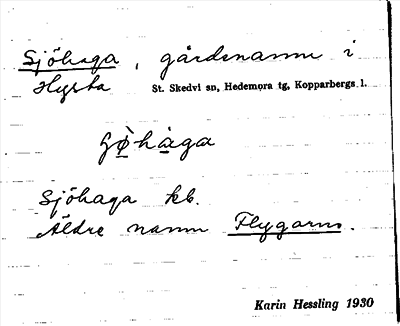 Sjöhaga, gårdsnamn i
Hyrsta St. Skedvi sn, Hedemora tg, Kopparbergs l.
Sjöhaga kb.
Äldre namn Flygarns.
Karin Hessling 1930